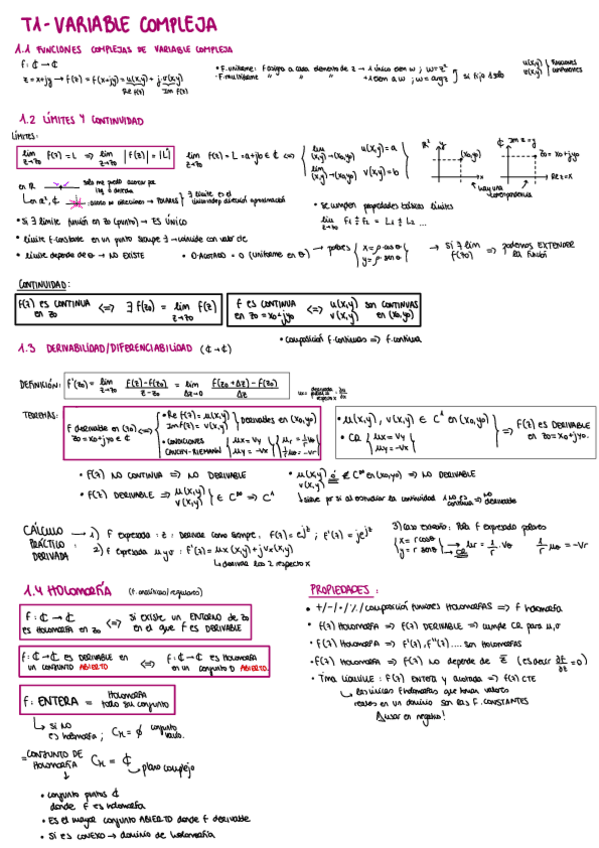 T1 - VARIABLE COMPLEJA
1.1 FUNCIONES COMPLEJAS DE VARIABLE COMPLEJA
f: ℂ → ℂ
z = x+jy → f(z) = f(x+jy) = u(x,y) + j·v(x,y)
Re f(z) Im f(z)
• F. uniforme: F asigna a cada elemento de z → 1 único elem w ; w=z²
• F. multiforme " " " +1 elem a w ; w = arg z
u(x,y)
v(x,y)
funciones
1.2 LÍMITES Y CONTINUIDAD
LÍMITES:
lim z→z₀ f(z) = L ⇒ lim z→z₀ |f(z)| = |L|
lim z→z₀ f(z) = L = a+jb ∈ ℂ ⇔ { lim (x,y)→(x₀,y₀) u(x,y) = a
lim (x,y)→(x₀,y₀) v(x,y) = b
R² y (x₀,y₀) x
ℂ Im z = y z₀ = x₀+jy₀ Re z = x
en R solo me puedo acercar por izq o derecha
en R², ℂ → POLARES } ∃ límite es el
• se cumplen propiedades básicas límites
lim z→z₀ F₁ ± F₂ = L₁ ± L₂ ...
• Si ∃ límite función en z₀ (punto) → ES ÚNICO
• límite f. constante en un punto siempre ∃ → coincide con valor cte
• límite depende de θ → NO EXISTE
• 0·ACOTADO = 0 (uniforme en θ) → polares { x = ρ cos θ
y = ρ sen θ
→ Si ∃ lim f(z₀) ⇒ podemos EXTENDER la función
CONTINUIDAD:
f(z) ES CONTINUA en z₀ ⇔ ∃ f(z₀) = lim z→z₀ f(z)
F es CONTINUA en z₀ = x₀+jy₀ ⇔ u(x,y) v(x,y) son CONTINUAS en (x₀,y₀)
• composición f. continuas ⇒ f. continua
1.3 DERIVABILIDAD/DIFERENCIABILIDAD (ℂ→ℂ)
DEFINICIÓN: f'(z₀) = lim z→z₀ f(z)-f(z₀) / z-z₀ = lim Δz→0 f(z₀+Δz)-f(z₀) / Δz
TEOREMAS:
F derivable en (z₀) z₀ = x₀+jy₀ ∈ ℂ ⇔ { • Re f(z) = u(x,y) Im f(z) = v(x,y) } Derivables en (x₀,y₀)
• CONDICIONES CAUCHY-RIEMANN { ux = vy uy = -vx { ur = 1/r vθ 1/r uθ = -vr
• u(x,y), v(x,y) ∈ C¹ en (x₀,y₀)
• CR { ux = vy uy = -vx
⇒ F(z) es DERIVABLE en z₀ = x₀+jy₀.
• f(z) NO CONTINUA ⇒ NO DERIVABLE
• f(z) DERIVABLE ⇒ u(x,y) v(x,y) } ∈ C^∞ ⇒ C¹
• u(x,y) ó v(x,y) ∉ C^∞ en (x₀,y₀) ⇒ NO DERIVABLE
↳ sirve pr si al estudiar la continuidad 1 no es continua ⇒ no derivable
CÁLCULO PRÁCTICO DERIVADA
→ 1) F expresada : z : Derivar como siempre. f(z) = e^jz ; f'(z) = je^jz
2) F expresada u y v : f'(z) = ux(x,y) + j vx(x,y)
↳ derivar las 2 respecto x
3) Caso extraño: Para f expresada polares
{ x = r cos θ y = r sen θ → ur = 1/r · vθ 1/r uθ = -vr
↳ CR
1.4 HOLOMORFÍA (f. analíticas/regulares)
f: ℂ → ℂ es HOLOMORFA en z₀ ⇔ Si existe un ENTORNO de z₀ en el que F es DERIVABLE
f: ℂ → ℂ es DERIVABLE en un CONJUNTO ABIERTO ⇔ f: ℂ → ℂ es HOLOMORFA en un conjunto D ABIERTO.
f: ENTERA = HOLOMORFA todo su conjunto
↳ Si NO es holomorfa ; CH = ∅ conjunto vacío.
= CONJUNTO DE HOLOMORFÍA CH = ℂ → plano complejo
• conjunto puntos ℂ donde F es holomorfa
• Es el mayor conjunto ABIERTO donde f derivable
• Si es CONEXO → dominio de holomorfía
PROPIEDADES :
• +/-/·/%/composición funciones HOLOMORFAS ⇒ F holomorfa
• f(z) HOLOMORFA ⇒ f(z) DERIVABLE ⇒ cumple CR para u,v
• f(z) HOLOMORFA ⇒ f'(z), f''(z) .... son HOLOMORFAS
• f(z) HOLOMORFA ⇒ f(z) no depende de z̄ (es decir ∂f/∂z̄ = 0)
• Tma LIOUVILLE : f(z) ENTERA y acotada ⇒ f(z) CTE
↳ las únicas f holomorfas que toman valores reales en un dominio son las F. CONSTANTES
⚠ usar en negativo!